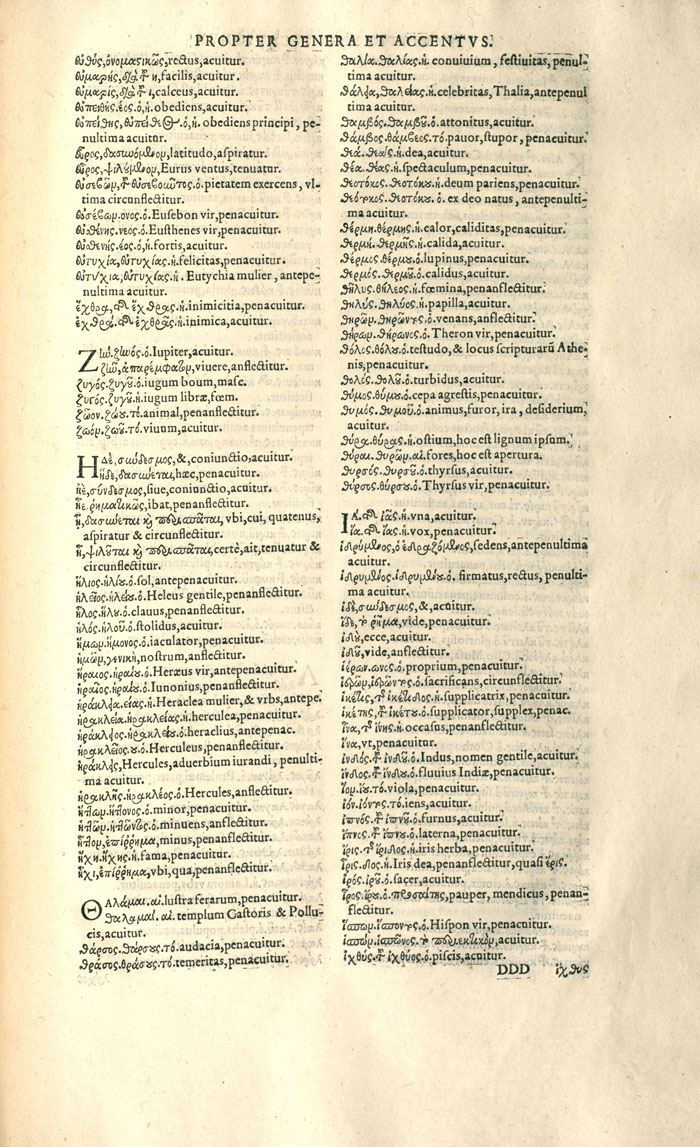 PROPTER GENERA ET ACCENTVS.
εὐθύς, ὀνομαστικῶς, rectus, acuitur.
εὐμαρὴς, διὰ τοῦ η, facilis, acuitur.
εὐμαρίς, διὰ τοῦ ι, calceus, acuitur.
εὐπειθής. έος. ὁ. ἡ. obediens, acuitur.
ὁ. ἡ. obediens principi, pe-
nultima acuitur.
εὖρος, latitudo, aspiratur.
εὖρος, Eurus ventus, tenuatur.
ὁ. pietatem exercens, vl-
tima circunflectitur.
εὐσέβων. ονος. ὁ. Eusebon vir, penacuitur.
εὐθένης. νεος. ὁ. Eusthenes vir, penacuitur.
εὐθενής. έος. ὁ, ἡ. fortis, acuitur.
εὐτυχία, εὐτυχίας. ἡ. felicitas, penacuitur.
εὐτύχια, εὐτυχίας. ἡ. Eutychia mulier, antepe-
nultima acuitur.
ἔχθρα, ἔχθρας. ἡ. inimicitia, penacuitur.
ἐχθρά. ἐχθρᾶς. ἡ. inimica, acuitur.
Ζῶ. ζωός. ὁ. Iupiter, acuitur.
ζῶ, ἀπαρέμφατον, viuere, anflectitur.
ζυγός. ζυγοῦ. ὁ. iugum boum, masc.
ζυγός. ζυγοῦ. ἡ. iugum libræ, fœm.
ζῶον. ζώου. τό. animal, penanflectitur.
ζωόν. ζωοῦ. τό. viuum, acuitur.
Ηδὲ, σύνδεσμος, &, coniunctio, acuitur.
ἥδε, δασύνεται, hæc, penacuitur.
ἠὲ, σύνδεσμος, siue, coniunctio, acuitur.
ἦε. ῥηματικῶς, ibat, penanflectitur.
ᾗ, δασύνεται καὶ περισπᾶται, vbi, cui, quatenus,
aspiratur & circunflectitur.
ἦ, ψιλοῦται καὶ περισπᾶται, certè, ait, tenuatur &
circunflectitur.
ἥλιος. ἡλίου. ὁ. sol, antepenacuitur.
ἠλεῖος. ἠλείου. ὁ. Heleus gentile, penanflectitur.
ἧλος. ἥλου. ὁ. clauus, penanflectitur.
ἠλός. ἠλοῦ. ὁ. stolidus, acuitur.
ἥμων. ἥμονος. ὁ. iaculator, penacuitur.
ἡμῶν, γενική, nostrum, anflectitur.
ἥραιος. ἡραίου. ὁ. Heræus vir, antepenacuitur.
ἡραῖος. ἡραίου. ὁ. Iunonius, penanflectitur.
ἡράκλεα. είας. ἡ. Heraclea mulier, & vrbs, antepe.
ἡρακλεία. ἡρακλείας. ἡ. herculea, penacuitur.
ἡράκλειος. ἡρακλείου. ὁ. heraclius, antepenac.
ἡρακλεῖος. ου. ὁ. Herculeus, penanflectitur.
ἡράκλεις, Hercules, aduerbium iurandi, penulti-
ma acuitur.
ἡρακλῆς. ἡρακλέος. ὁ. Hercules, anflectitur.
ἥττων. ἥττονος. ὁ. minor, penacuitur.
ἡττῶν. ἡττῶντος. ὁ. minuens, anflectitur.
ἧττον, ἐπίρρημα, minus, penanflectitur.
ἤχη. ἤχης. ἡ. fama, penacuitur.
ἧχι, ἐπίρρημα, vbi, qua, penanflectitur.
Θαλάμαι. αἱ. lustra ferarum, penacuitur.
θαλαμαί. αἱ. templum Castoris & Pollu-
cis, acuitur.
θάρσος. θάρσους. τό. audacia, penacuitur.
θράσος. θράσους. τό. temeritas, penacuitur.
θαλία. θαλίας. ἡ. conuiuium, festiuitas, penul-
tima acuitur.
θάλεια, θαλείας. ἡ. celebritas, Thalia, antepenul
tima acuitur.
θαμβός. θαμβοῦ. ὁ. attonitus, acuitur.
θάμβος. θάμβεος. τό. pauor, stupor, penacuitur.
θεά. θεᾶς. ἡ. dea, acuitur.
θέα. θέας. ἡ. spectaculum, penacuitur.
θεοτόκος. θεοτόκου. ἡ. deum pariens, penacuitur.
θεότοκος. θεοτόκου. ὁ. ex deo natus, antepenulti-
ma acuitur.
θέρμη. θέρμης. ἡ. calor, caliditas, penacuitur.
θερμή. θερμῆς. ἡ. calida, acuitur.
θέρμος. θέρμου. ὁ. lupinus, penacuitur.
θερμός. θερμοῦ. ὁ. calidus, acuitur.
θῆλυς. θήλεος. ἡ. fœmina, penanflectitur.
θηλύς. θηλύος. ἡ. papilla, acuitur.
θηρῶν. θηρῶντος. ὁ. venans, anflectitur.
θήρων. θήρωνος. ὁ. Theron vir, penacuitur.
θόλος. θόλου. ὁ. testudo, & locus scripturarū Athe-
nis, penacuitur.
θολός. θολοῦ. ὁ. turbidus, acuitur.
θύμος. θύμου. ὁ. cepa agrestis, penacuitur.
θυμός. θυμοῦ. ὁ. animus, furor, ira, desiderium,
acuitur.
θύρα. θύρας. ἡ. ostium, hoc est lignum ipsum.
θύραι. θυρῶν. αἱ. fores, hoc est apertura.
θυρσός. θυρσοῦ. ὁ. thyrsus, acuitur.
θύρσος. θύρσου. ὁ. Thyrsus vir, penacuitur.
ΙΑ. ἰᾶς. ἡ. vna, acuitur.
ἴα. ἴας. ἡ. vox, penacuitur.
ἱδρύμενος, ὁ ἑδραζόμενος, sedens, antepenultima
acuitur.
ἱδρυμένος. ἱδρυμένου. ὁ. firmatus, rectus, penulti-
ma acuitur.
ἰδὲ, σύνδεσμος, &, acuitur.
ἴδε, τὸ ῥῆμα, vide, penacuitur.
ἰδού, ecce, acuitur.
ἰδοῦ, vide, anflectitur.
ἱέρων. ωνος. ὁ. proprium, penacuitur.
ὁ. sacrificans, circunflectitur.
ἱκέτις, ἱκέτιδος. ἡ. supplicatrix, penacuitur.
ἱκέτης, τοῦ ἱκέτου. ὁ. supplicator, supplex, penac.
ἶνα, ἴνης. ἡ. occasus, penanflectitur.
ἵνα, vt, penacuitur.
ἰνδός. τοῦ ἰνδοῦ. ὁ. Indus, nomen gentile, acuitur.
ἴνδος. τοῦ ἴνδου. ὁ. fluuius Indiæ, penacuitur.
ἴον. ἴου. τό. viola, penacuitur.
ἰόν. ἰόντος. τό. iens, acuitur.
ἰπνός. τοῦ ἰπνοῦ. ὁ. furnus, acuitur.
ἴπνος. τοῦ ἴπνου. ὁ. laterna, penacuitur.
ἴρις. τοῦ ἴριδος. ἡ. iris herba, penacuitur.
ἶρις. ιδος. ἡ. Iris dea, penanflectitur, quasi ἔρις.
ἱρός. ἱροῦ. ὁ. sacer, acuitur.
ἶρος. ἴρου. ὁ. προσαίτης, pauper, mendicus, penan-
flectitur.
ἵσπων. ἵσποντος. ὁ. Hispon vir, penacuitur.
acuitur.
ἰχθύς. τοῦ ἰχθύος. ὁ. piscis, acuitur.
DDD ἰχθυς